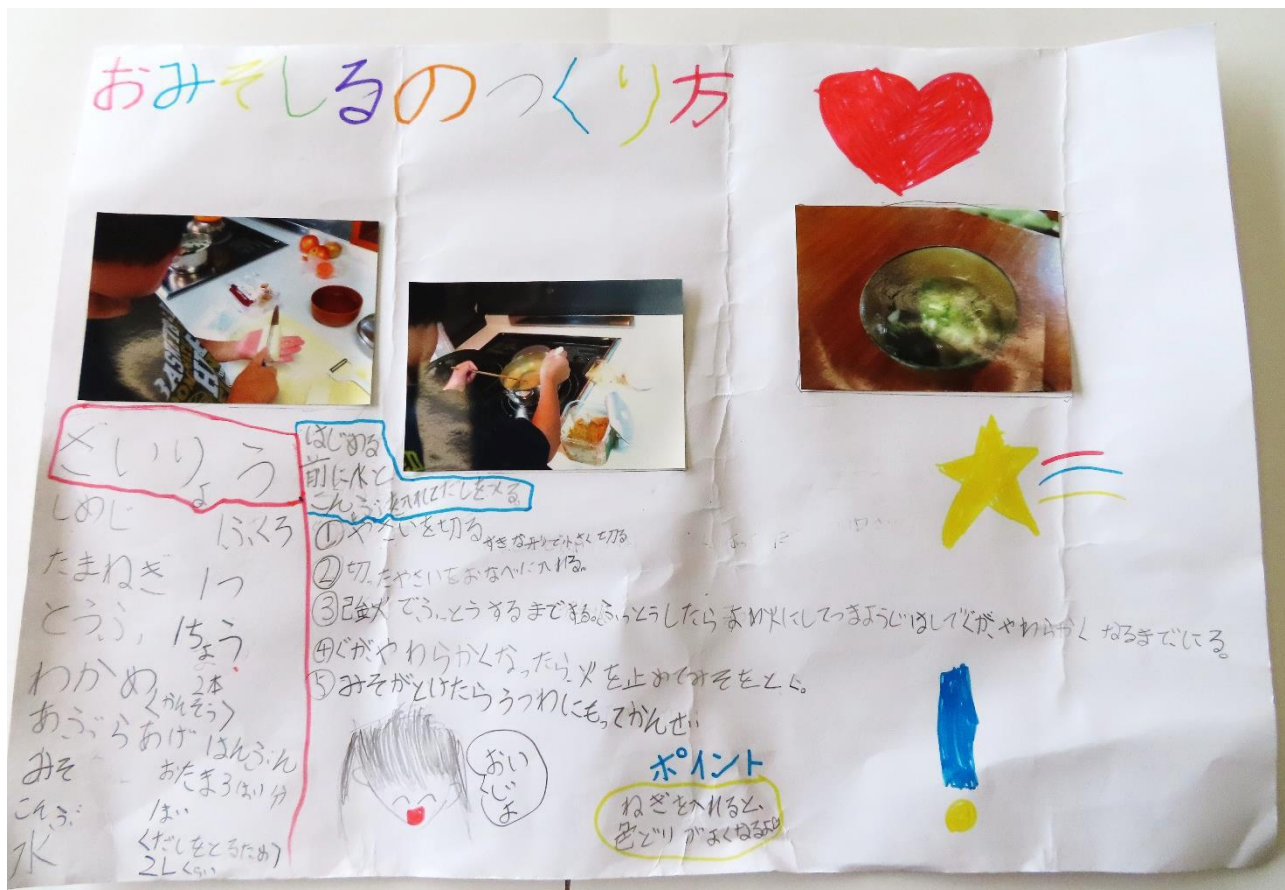 おみそしるのつくり方
ざいりょう
しめじ 1ふくろ
たまねぎ 1つ
とうふ 1ちょう
わかめ 2本
<かんそう>
あぶらあげ はんぶん
みそ おたま3ばい分
こんぶ 1まい
<だしをとるため>
水 2Lくらい
はじめる
前に水と
こんぶを入れてだしをとる。
①やさいを切る すきな形で小さく切る
②切ったやさいをおなべに入れる。
③強火でふっとうするまでする。ふっとうしたらよわ火にしてつまようじはしでぐがやわらかくなるまでにる。
④ぐがやわらかくなったら、火を止めてみそをとく。
⑤みそがとけたらうつわにもってかんせい
おい
しいよ
ポイント
ねぎを入れると、
色どりがよくなるよ